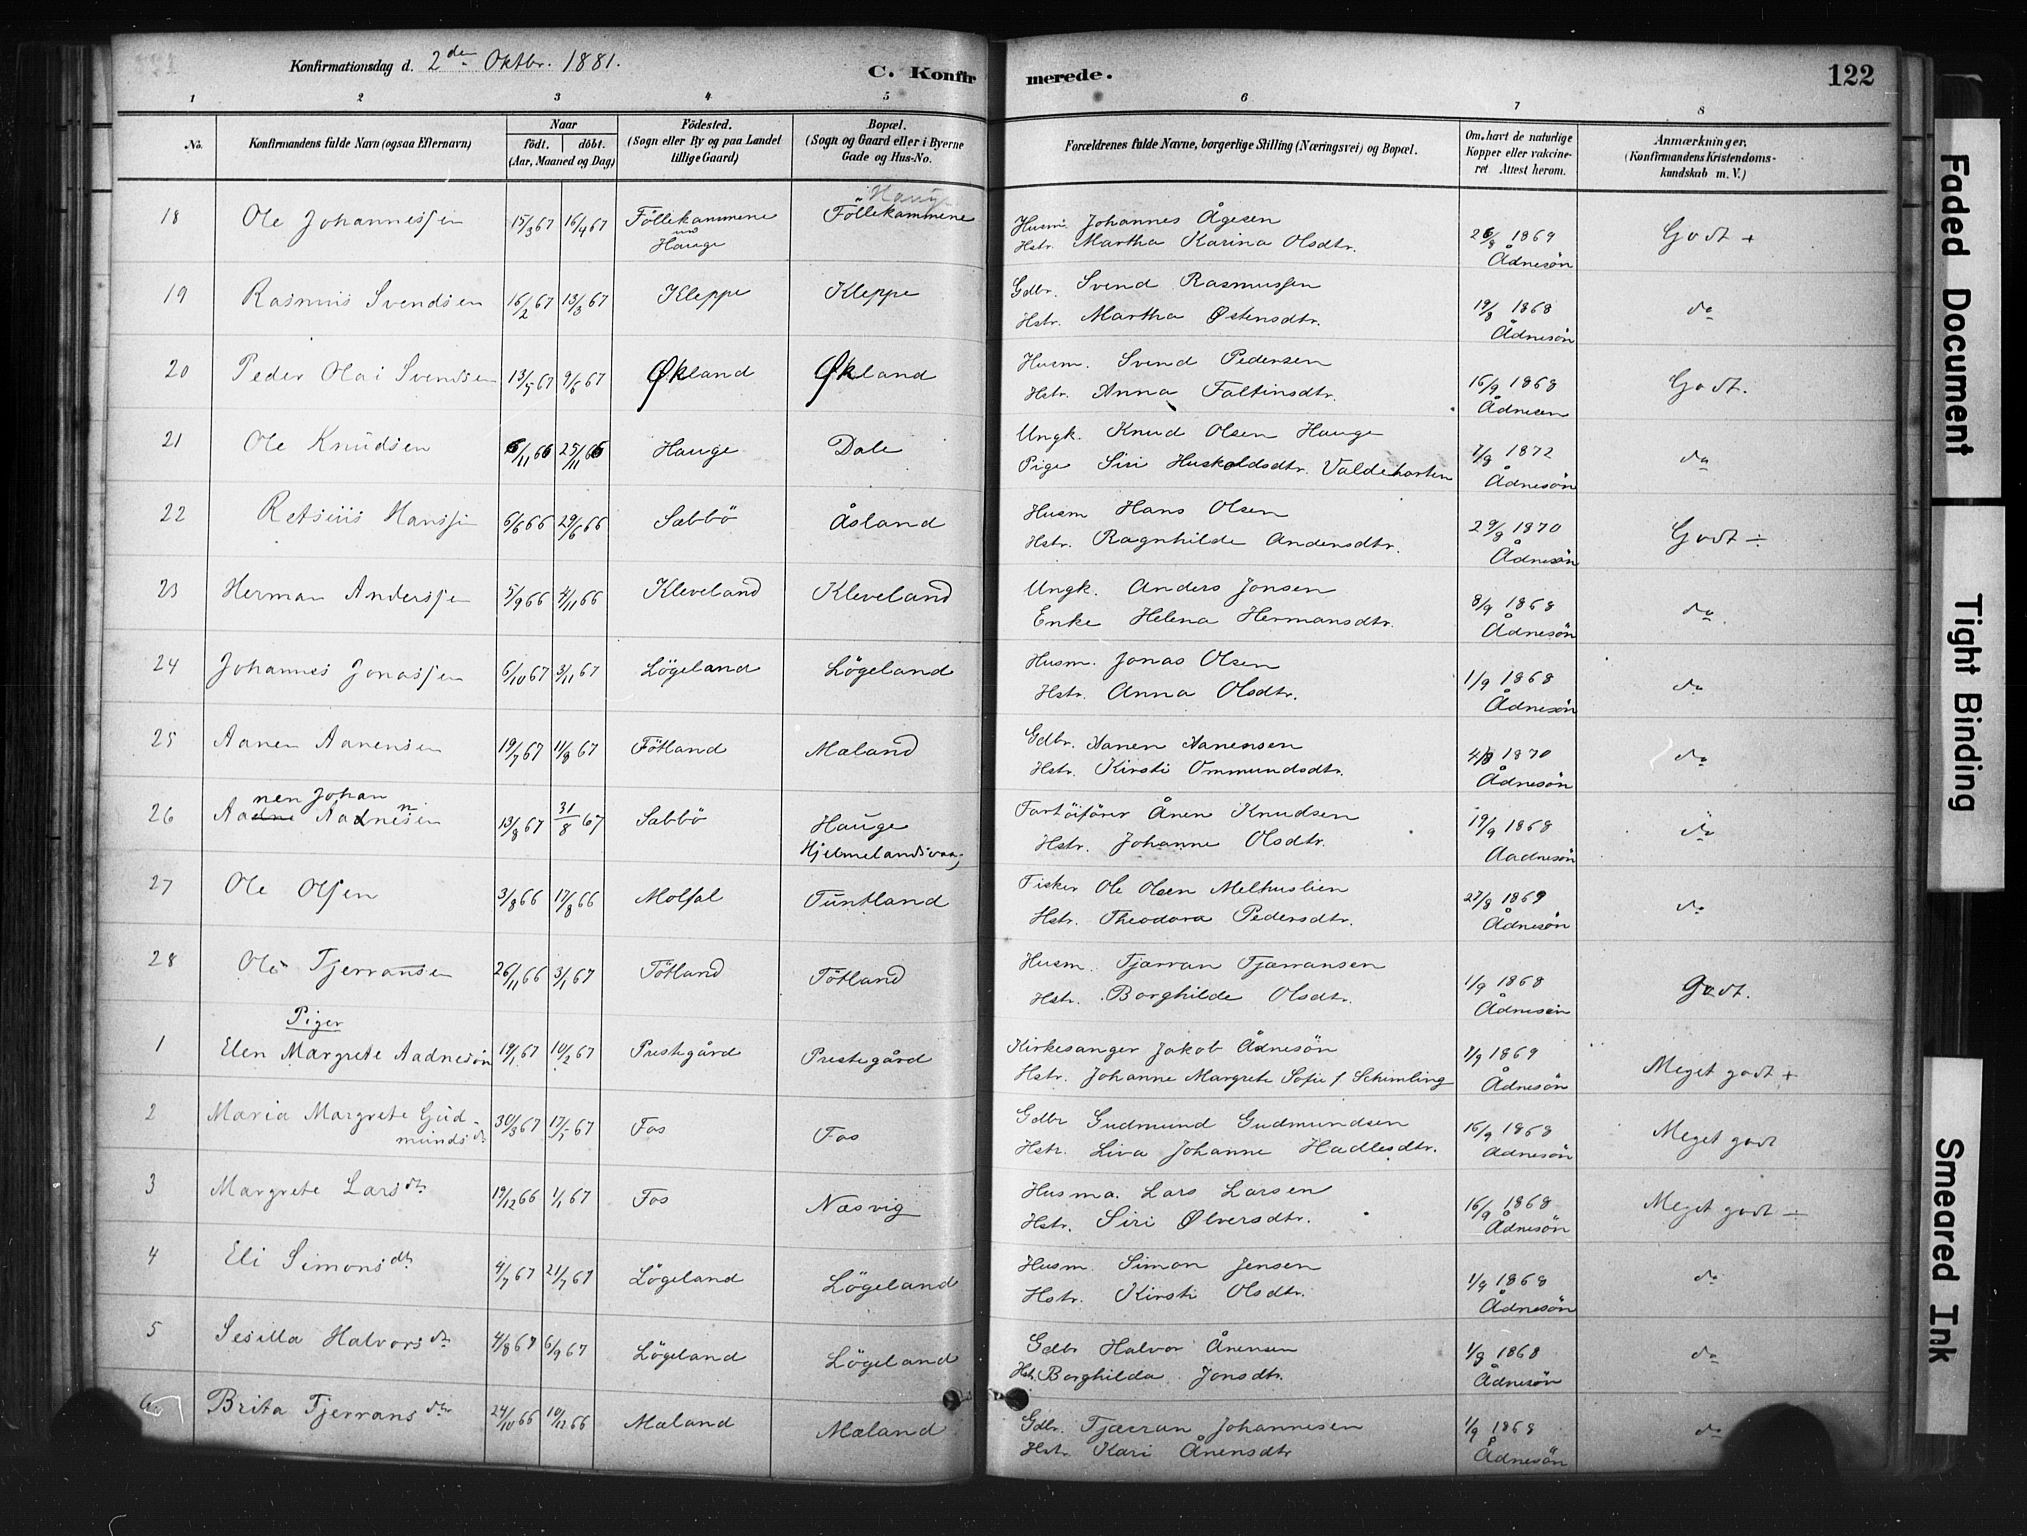 Konfirmationsdag d. 2den Oktbr. 1881.
C. Konfirmerede.
122
1 2 3 4 5 6 7 8
No. Konfirmandens fulde Navn (ogsaa Efternavn) Naar født. døbt. (Aar, Maaned og Dag) Födested. (Sogn eller By og paa Landet tillige Gaard) Bopæl. (Sogn og Gaard eller i Byerne Gade og Hus-No. Forældrenes fulde Navne, borgerlige Stilling (Næringsvei) og Bopæl. Om havt de naturlige Kopper eller vakcineret Attest herom. Anmærkninger. (Konfirmandens Kristendomskundskab m. V.)
18 Ole Johannessen 15/3 67 16/4 67 Föllekammene und Hauge Hauge Föllekammene Husm. Johannes Ågesen
Hstr. Martha Karina Olsdtr. 26/8 1869 Ådnesön Godt +
19 Rasmus Svendsen 16/2 67 13/3 67 Kleppe Kleppe Gdbr. Svend Rasmussen
Hstr. Martha Østensdtr. 19/8 1868 Ådnesön do
20 Peder Olai Svendsen 13/5 67 9/6 67 Økland Økland Husm. Svend Pedersen
Hstr. Anna Faltinsdtr. 16/9 1868 Ådnesen Godt.
21 Ole Knudsen 6/11 66 25/11 66 Hauge Dale Ungk. Knud Olsen Hauge
Pige Siri Huskoldsdtr. Valdehorten 7/8 1872 Ådnesön do
22 Retsius Hanssen 6/6 66 29/6 66 Sæbbö Åsland Husm Hans Olsen
Hstr. Ragnhilde Andersdtr. 29/8 1870 Ådnesön Godt ÷
23 Herman Anderssen 5/9 66 4/11 66 Kleveland Kleveland Ungk. Anders Jonsen
Enke Helena Hermansdtr. 8/9 1868 Ådnesön do
24 Johannes Jonassen 6/10 67 3/11 67 Lögeland Lögeland Husm. Jonas Olsen
Hstr. Anna Olsdtr. 1/9 1868 Ådnesön do
25 Aanen Aanensen 19/7 67 11/8 67 Fötland Mæland Gdbr. Aanen Aanensen
Hstr. Kirsti Ommundsdtr. 4/8 1870 Ådnesön do
26 Aadne nen Johan Aadnesen n 13/8 67 31/8 67 Sæbbö Hauge Hjelmelandsvaag Fartöiförer Ånen Knudsen
Hstr. Johanne Olsdtr. 19/9 1868 Aadnesön do
27 Ole Olsen 3/8 66 17/8 66 Molfal Tuntland Fisker Ole Olsen Melhuslien
Hstr. Theodora Pedersdtr. 27/8 1869 Ådnesön do
28 Ole Tjerransen 26/11 66 3/1 67 Tötland Tötland Husm. Tjærran Tjærransen
Hstr. Borghilde Olsdtr. 1/9 1868 Ådnesön Godt.
Piger
1 Elen Margrete Aadnesön 19/1 67 10/2 67 Prestegård Prestegård Kirkesanger Jakob Ådnesön
Hstr. Johanne Margrete Sofie f. Schimling 7/9 1869 Ådnesön Meget godt +
2 Maria Margrete Gudmundsdtr 30/3 67 17/5 67 Fos Fos Gdbr Gudmund Gudmundsen
Hstr. Liva Johanne Hadlesdtr. 16/9 1868 Ådnesön Meget godt
3 Margrete Larsdtr 19/12 66 1/1 67 Fos Næsvig Husma. Lars Larsen
Hstr. Siri Ølversdtr. 16/9 1868 Ådnesön Meget godt ÷
4 Eli Simonsdtr 4/7 67 21/7 67 Lögeland Lögeland Husm. Simon Jensen
Hstr. Kirsti Olsdtr. 1/9 1868 Ådnesön do
5 Sesilla Halvorsdtr 4/8 67 6/9 67 Lögeland Lögeland Gdbr Halvor Ånensen
Hstr. Borghilda Jonsdtr. 1/9 1868 Ådnesön do
6 Brita Tjerransdtr 24/10 66 10/12 66 Mæland Mæland Gdbr. Tjærran Johannesen
Hstr. Kari Ånensdtr 1/9 1868 Ådnesön do
Faded Document
Tight Binding
Smeared Ink